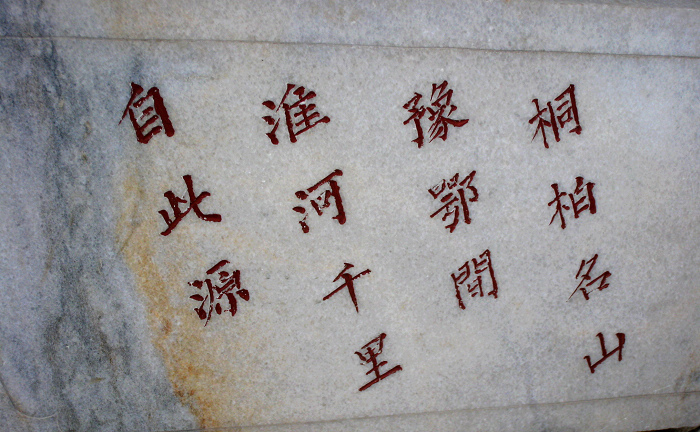 桐柏名山
豫鄂間
淮河千里
自此源